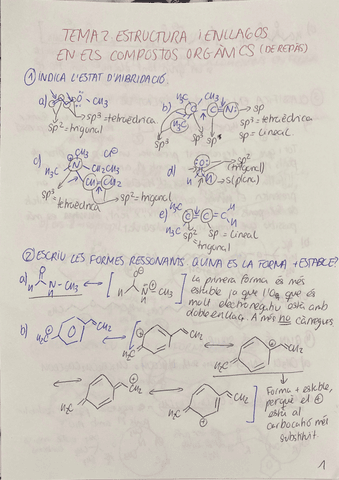 TEMA 2 ESTRUCTURA I ENLLAÇOS
EN ELS COMPOSTOS ORGÀNICS (DE REPÀS)
① INDICA L'ESTAT D'HIBRIDACIÓ.
a) O CH₃
sp³ = tetraèdrica
sp² = trigonal
b) H₃C CH₃ C N: sp
H₃C
sp³ sp³ sp³
sp³ = tetraèdrica
sp = Lineal
c) CH₃ Cl⊖
H₃C N CH₂CH₃
CH CH₂
sp³ = tetraèdrica
sp² = trigonal
d) :O: sp² (trigonal)
H H s (plana)
e) H₃C C = C = C H
H₃C H
sp² = trigonal
sp = Lineal
② ESCRIU LES FORMES RESSONANTS. QUINA ÉS LA FORMA + ESTABLE?
a) O H N CH₃ H
O⊖ H N CH₃ H
La primera forma és més
estable ja que l'O que és
molt electronegatiu està amb
doble enllaç. A més no càrregues
b) H₃C CH₂
H₃C CH₂
H₃C CH₂
H₃C CH₂
H₃C CH₂
Forma + estable,
perquè el ⊕
està al
carbocatió més
substituït.
1